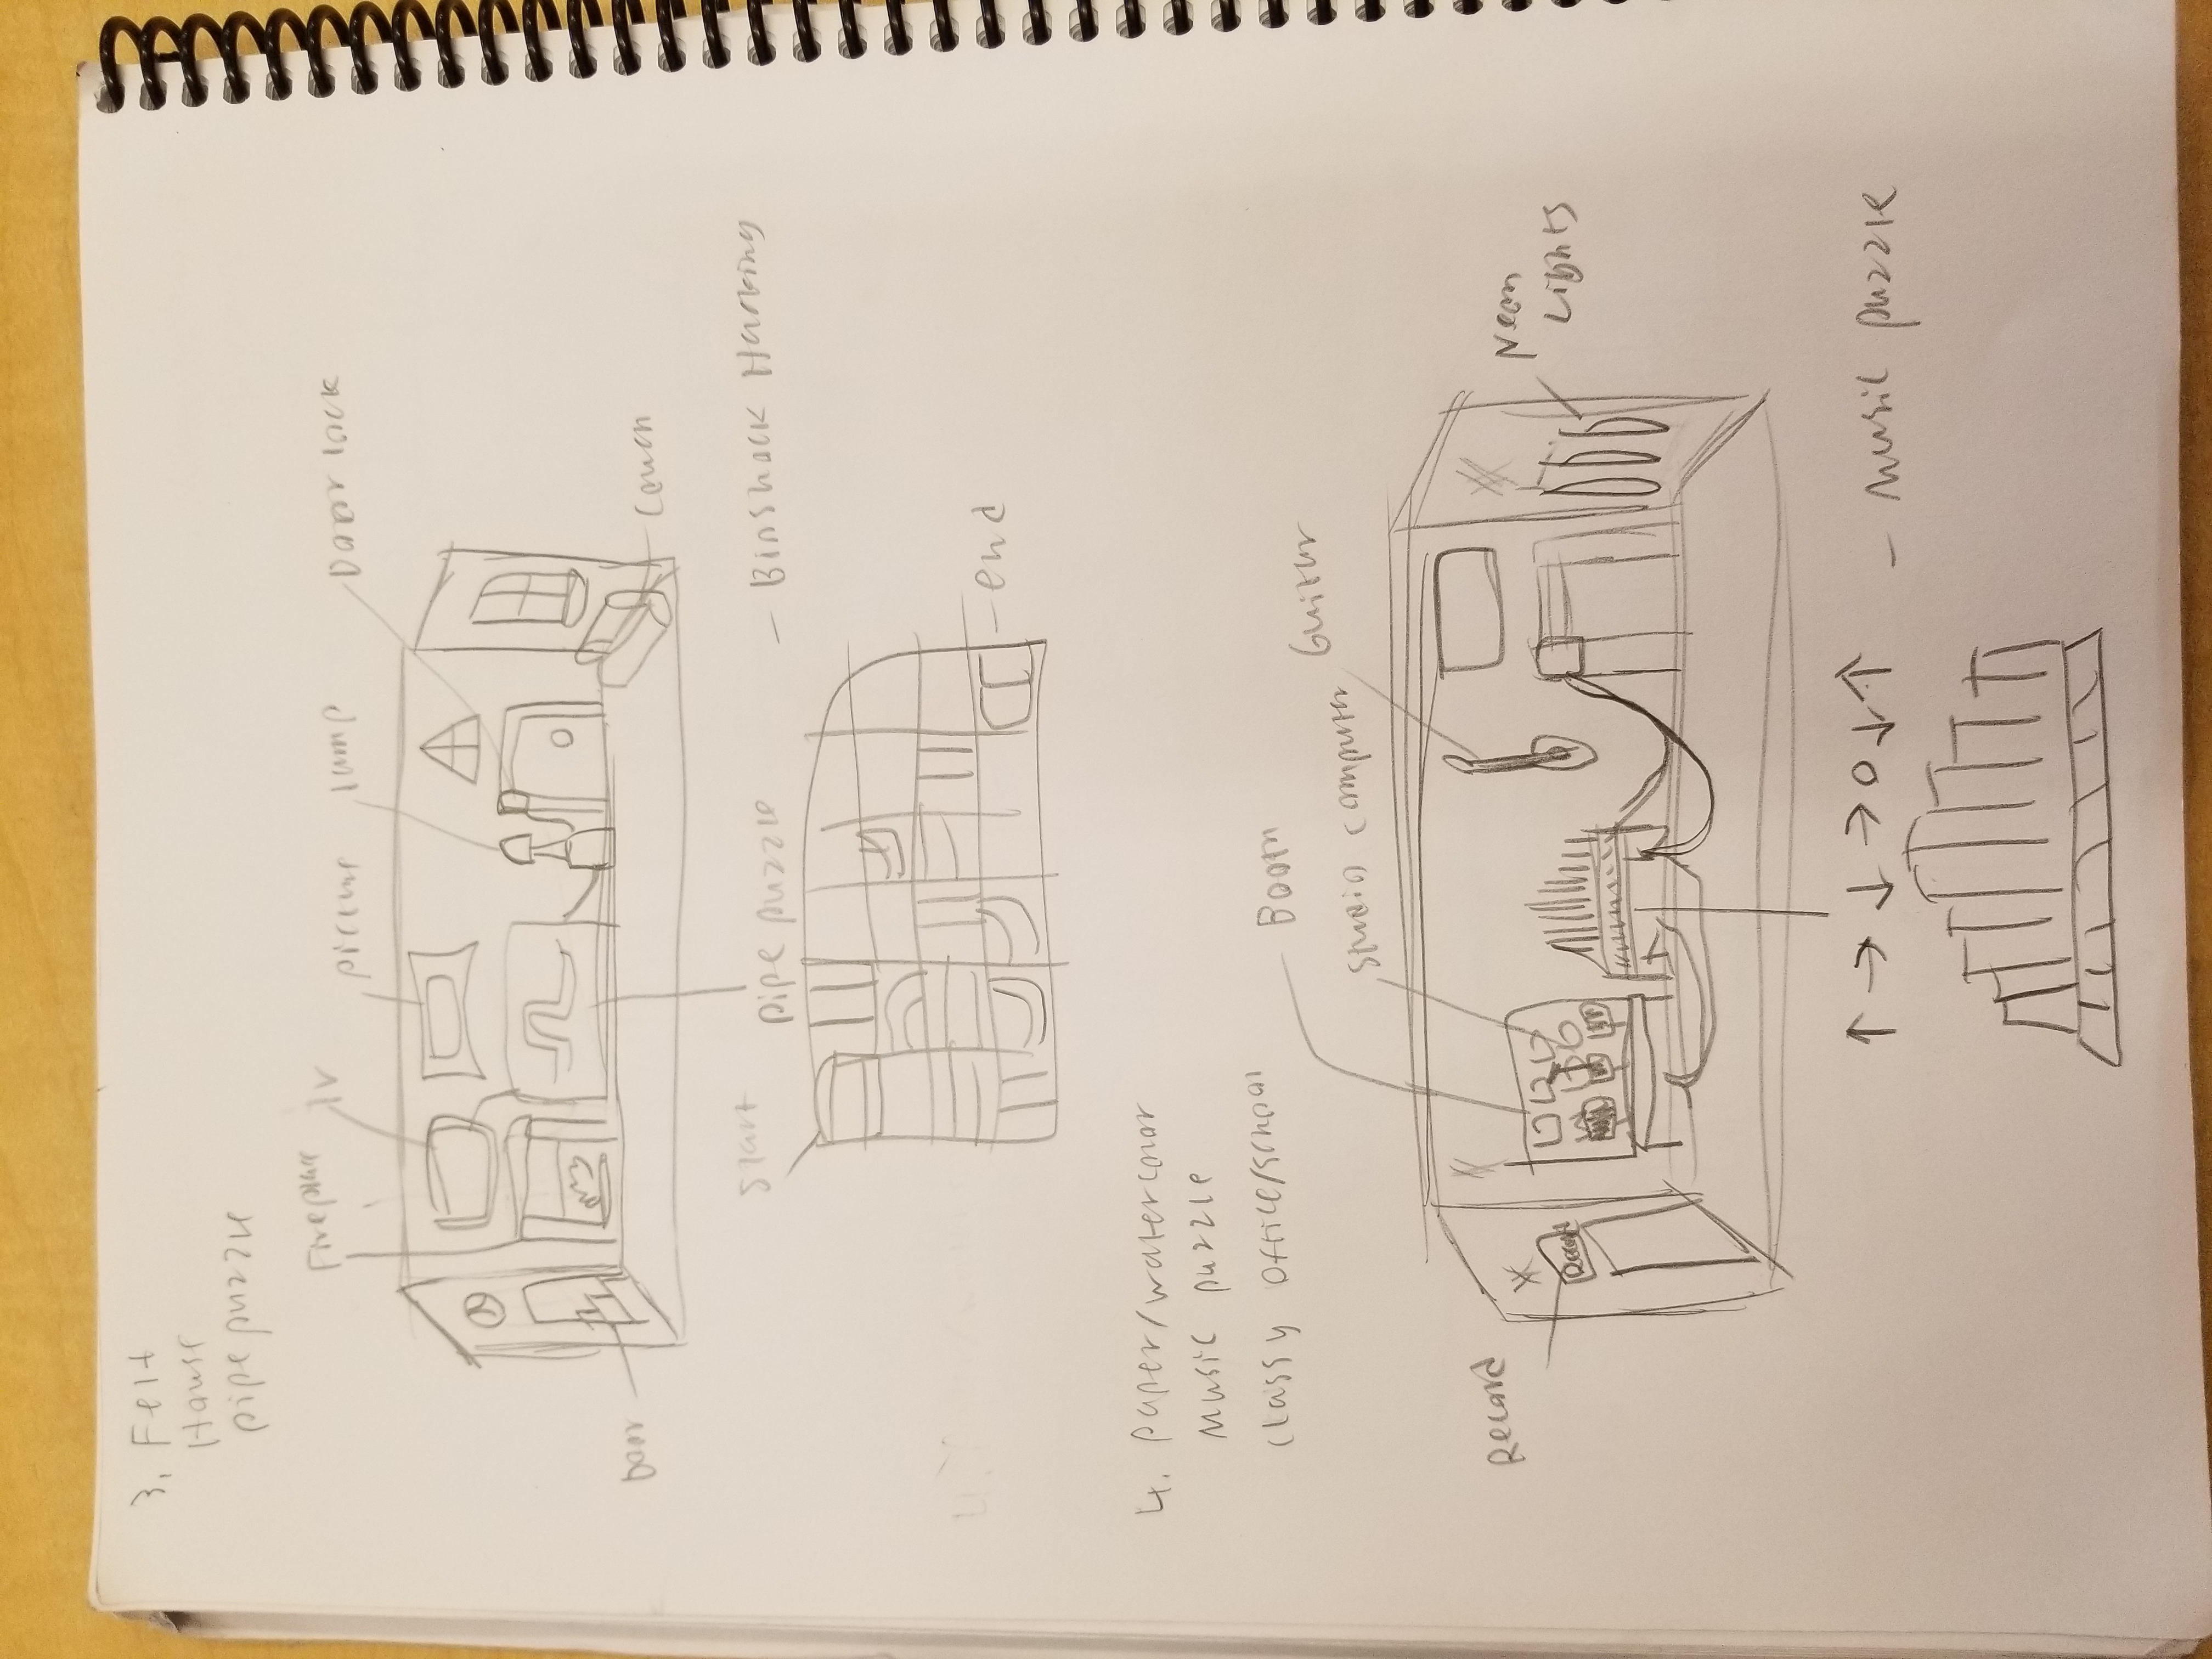 3. Felt
House
pipe puzzle
Fireplace
TV
picture
lamp
Door lock
Door
Couch
pipe puzzle
- Bioshock Hacking
Start
end
4. paper/watercolor
music puzzle
classy office/school
Boom
Studio computer
Guitar
Neon
Lights
Record
↑ → ↓ → O ↓ ↑ - music puzzle